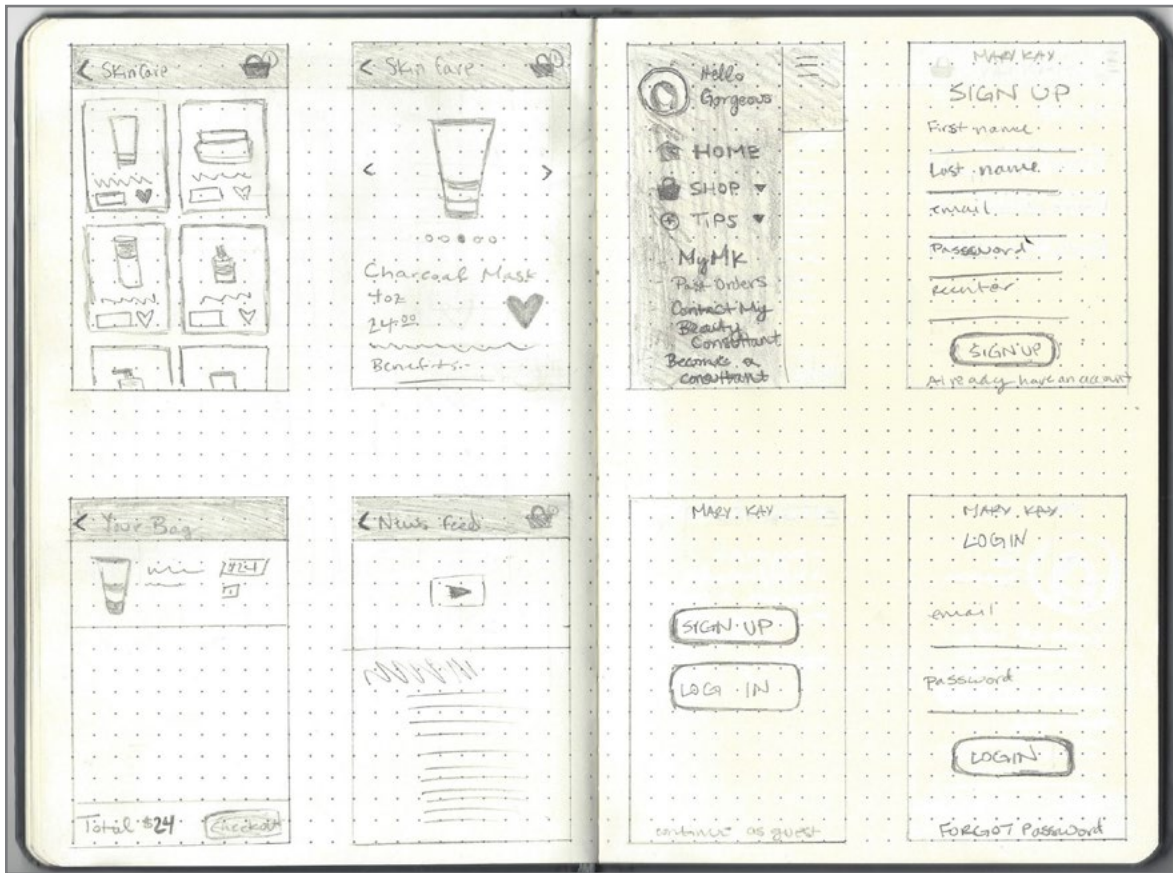 < Skin Care
< Skin Care
Charcoal Mask
4oz
24.00
Benefits
Hello
Gorgeous
HOME
SHOP
TIPS
MyMK
Past Orders
Contact My
Beauty
Consultant
Become a
consultant
MARY KAY
SIGN UP
First name
Last name
email
Password
SIGN UP
Already have an account
< Your Bag
$24
1
Total $24
Checkout
< News Feed
MARY KAY
SIGN UP
LOG IN
continue as guest
MARY KAY
LOGIN
email
password
LOGIN
FORGOT Password